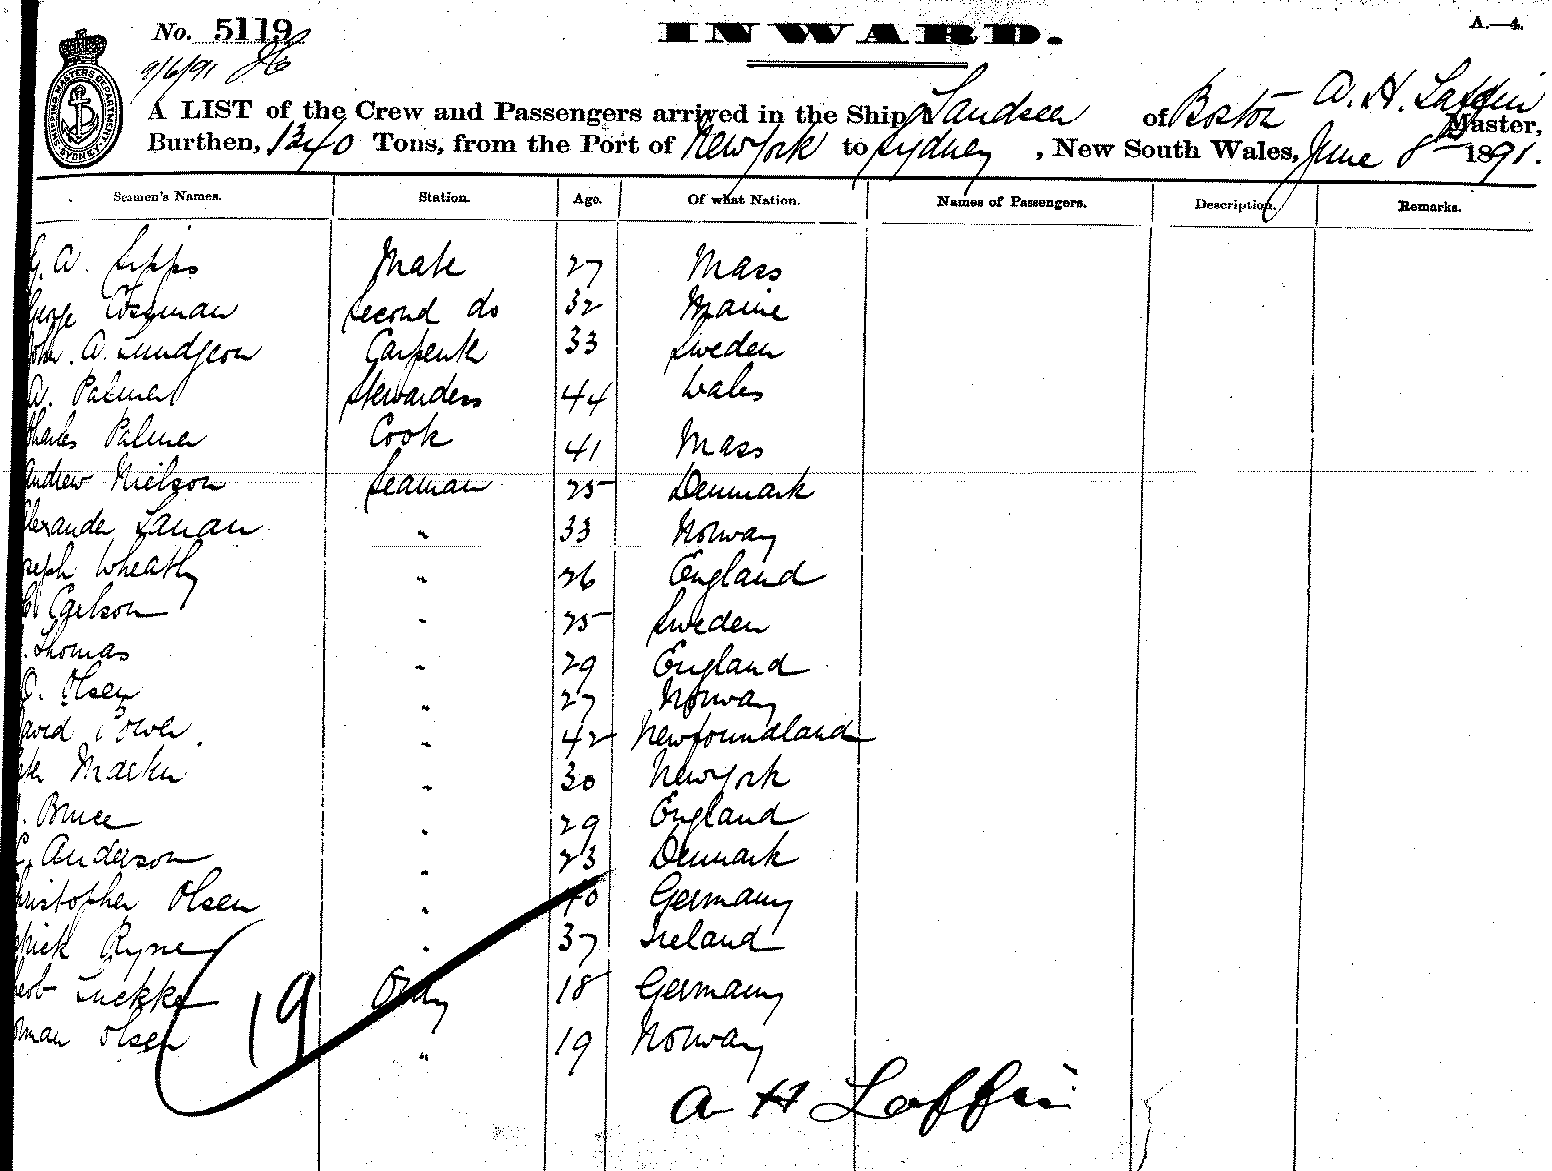 No. 5119
9/6/91
INWARD.
A.—4.
SHIPPING MASTERS DEPARTMENT SYDNEY
A LIST of the Crew and Passengers arrived in the Ship Landseer of Boston A. H. Laffin Master,
Burthen, 1340 Tons, from the Port of New York to Sydney, New South Wales, June 8th 1891.
Seamen's Names. Station. Age. Of what Nation. Names of Passengers. Description. Remarks.
G. A. Sipps Mate 27 Mass
George Wegman Second do 32 Maine
John A. Lundgeon Carpenter 33 Sweden
A. Palmer Stewardess 44 Wales
Charles Palmer Cook 41 Mass
Andrew Nielson Seaman 25 Denmark
Alexander " 33 Norway
Joseph Wheatly " 26 England
Carlson " 25 Sweden
Thomas " 29 England
O. Olsen " 27 Norway
David Power " 42 Newfoundland
" 30 New York
Bruce " 29 England
C. Anderson " 23 Denmark
Christopher Olsen " 40 Germany
Patrick Ryne " 37 Ireland
Jacob Luekke Ordy 18 Germany
Olsen " 19 Norway
19
A H Laffin